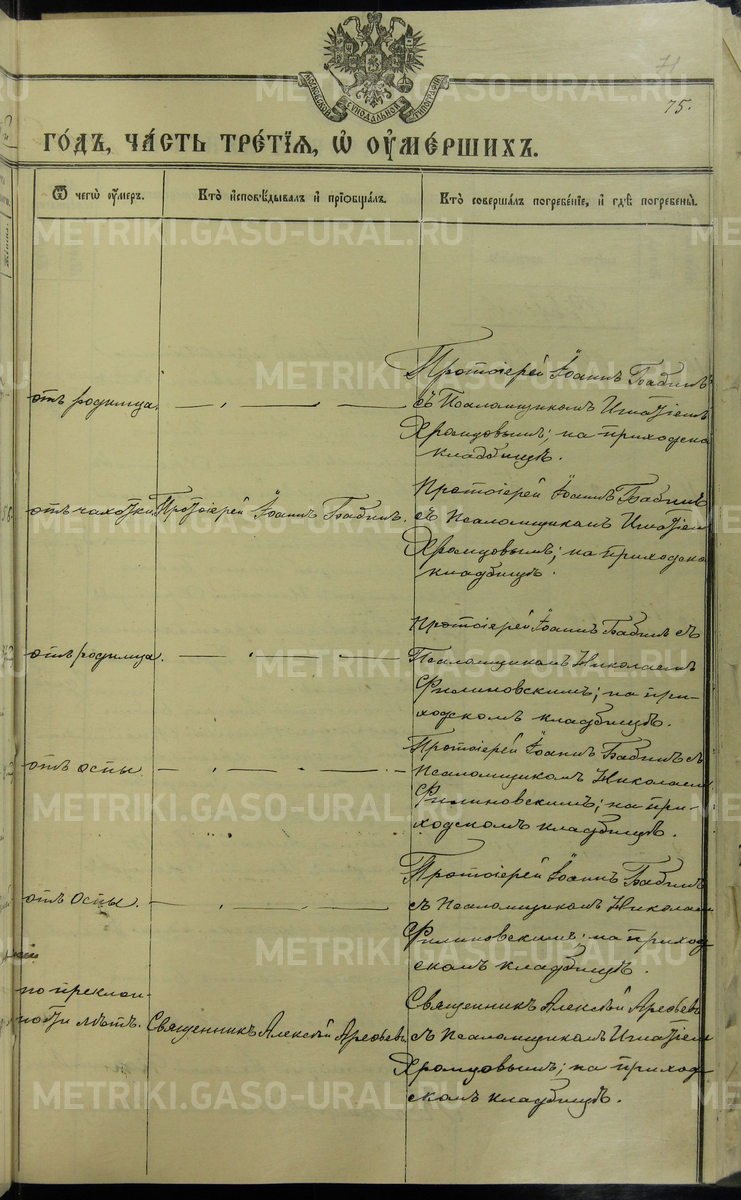 МОСКОВСКОЙ СѴНОДАЛЬНОЙ ТИПОГРАФІИ
71
75.
ГО́ДЪ, ЧА́СТЬ ТРЕ́ТІѦ, Ѡ҆ ОУ҆МЕ́РШИХЪ.
Ѿ чегѡ̀ оу҆́меръ.
Кто̀ и҆сповѣ́дывалъ и҆ прїѡбща́лъ.
Кто̀ соверша́лъ погребе́нїе, и҆ гдѣ̀ погребены̀.
отъ родимца.
Протоіерей Іоаннъ Бабинъ
съ Псаломщикомъ Игнатіемъ
Хромцовымъ; на приходско
кладбищѣ.
отъ чахотки.
Протоіерей Іоаннъ Бабинъ.
Протоіерей Іоаннъ Бабинъ
съ Псаломщикомъ Игнатіем
Хромцовымъ; на приходско
кладбищѣ.
отъ родимца.
Протоіерей Іоаннъ Бабинъ съ
Псаломщикомъ Николаемъ
Филиновскимъ; на при-
ходскомъ кладбищѣ.
отъ оспы
Протоіерей Іоаннъ Бабинъ с
Псаломщикомъ Николаем
Филиновскимъ; на при-
ходскомъ кладбищѣ.
отъ Оспы.
Протоіерей Іоаннъ Бабинъ
съ Псаломщикомъ Николаем
Филиновскимъ; на приход
скомъ кладбищѣ.
по преклон-
ности лѣтъ.
Священникъ Алексѣй Арефьевъ
Священникъ Алексѣй Арефьевъ
съ Псаломщикомъ Игнатіем
Хромцовымъ; на приход
скомъ кладбищѣ.
METRIKI.GASO-URAL.RU